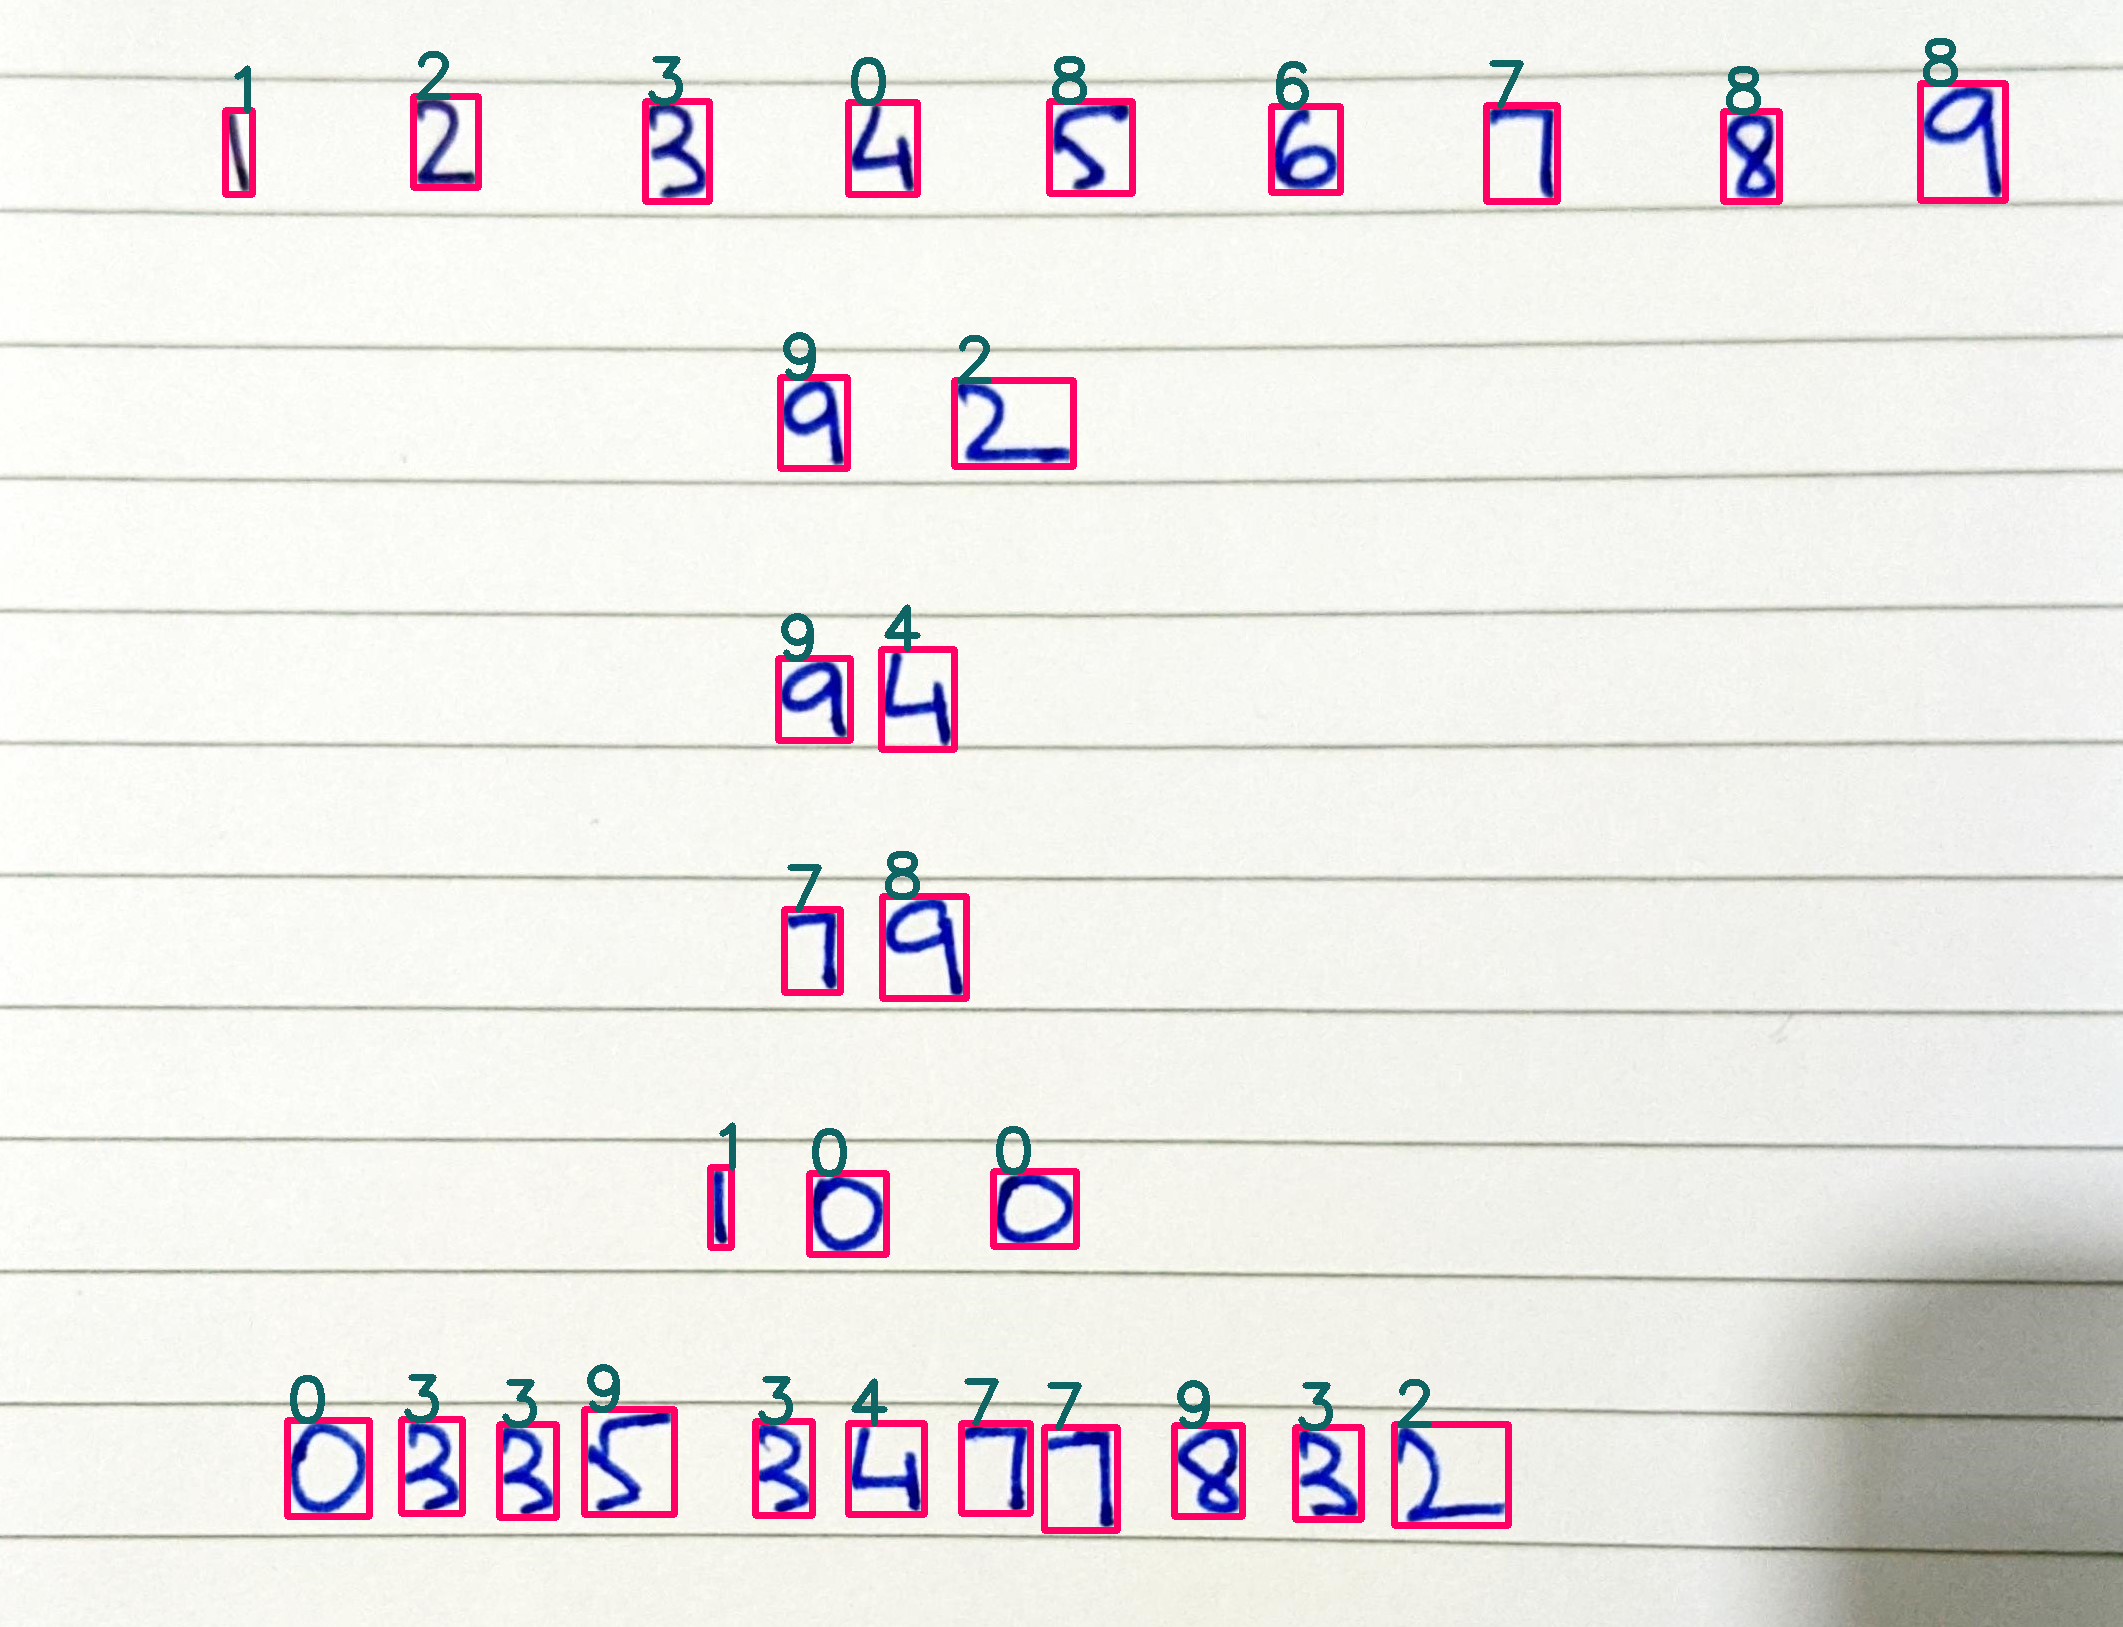 1 2 3 0 8 6 7 8 8
1 2 3 4 5 6 7 8 9
9 2
9 2
9 4
9 4
7 8
7 9
1 0 0
1 0 0
0 3 3 9 3 4 7 7 9 3 2
0 3 3 5 3 4 7 7 8 3 2